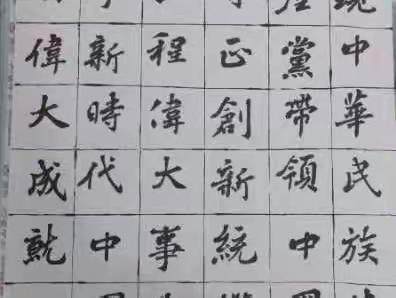 現中華民族
產黨帶領中
正創新統
程偉大事
新時代中
偉大成就